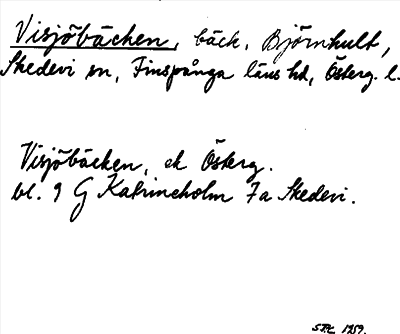 Visjöbäcken, bäck, Björnhult,
Skedevi sn, Finspånga läns hd, Österg. l.
Visjöbäcken, ek Österg.
bl. 9 G Katrineholm 7a Skedevi.
1959.